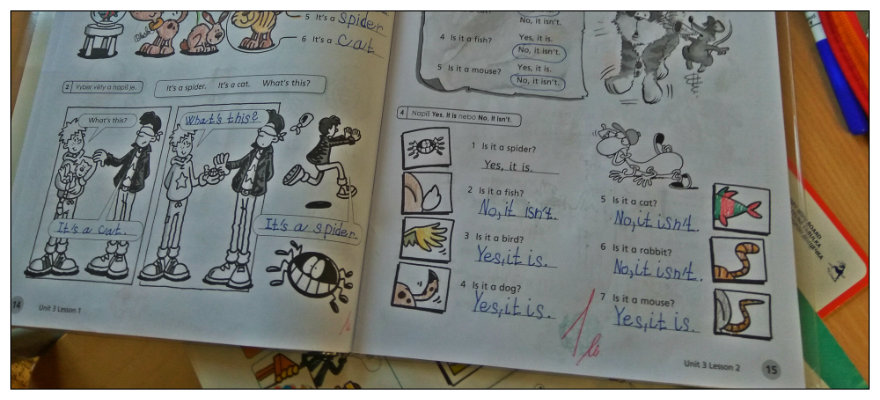 5 It's a spider
6 It's a cat
2 Vyber věty a napiš je.
It's a spider. It's a cat. What's this?
What's this?
What's this?
It's a cat.
It's a spider.
14 Unit 3 Lesson 1
No, it isn't.
4 Is it a fish? Yes, it is.
No, it isn't.
5 Is it a mouse? Yes, it is.
No, it isn't.
4 Napiš Yes, it is nebo No, it isn't.
1 Is it a spider?
Yes, it is.
2 Is it a fish?
No, it isn't.
3 Is it a bird?
Yes, it is.
4 Is it a dog?
Yes, it is.
5 Is it a cat?
No, it isn't.
6 Is it a rabbit?
No, it isn't.
7 Is it a mouse?
Yes, it is.
Unit 3 Lesson 2 15
BOARD